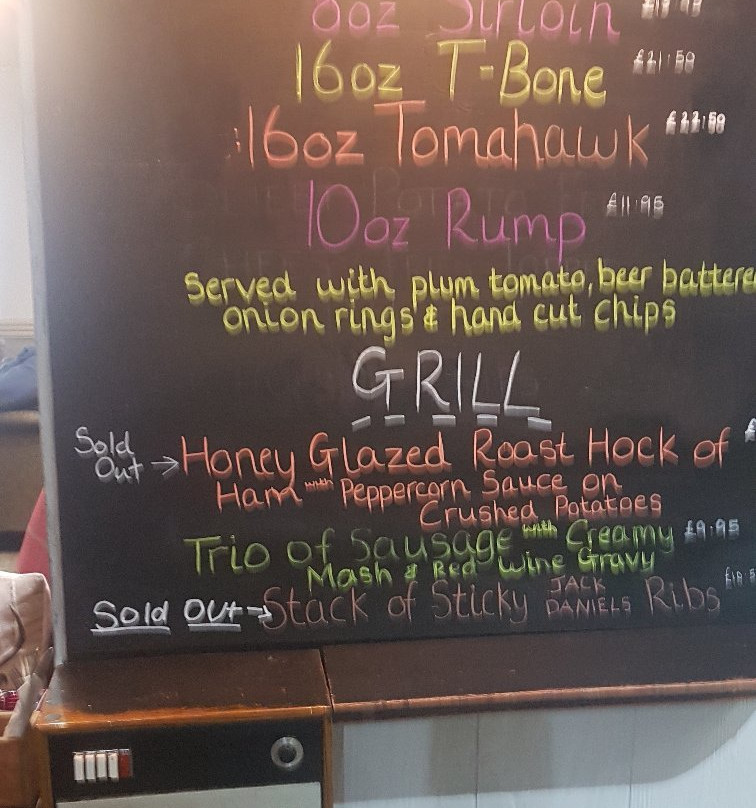 8oz Sirloin
16oz T-Bone £21.50
16oz Tomahawk £22.50
10oz Rump £11.95
Served with plum tomato, beer battere
onion rings & hand cut chips
GRILL
Sold Out → Honey Glazed Roast Hock of £
Ham with Peppercorn Sauce on
Crushed Potatoes
Trio of Sausage with Creamy £9.95
Mash & Red Wine Gravy
Sold Out → Stack of Sticky JACK DANIELS Ribs